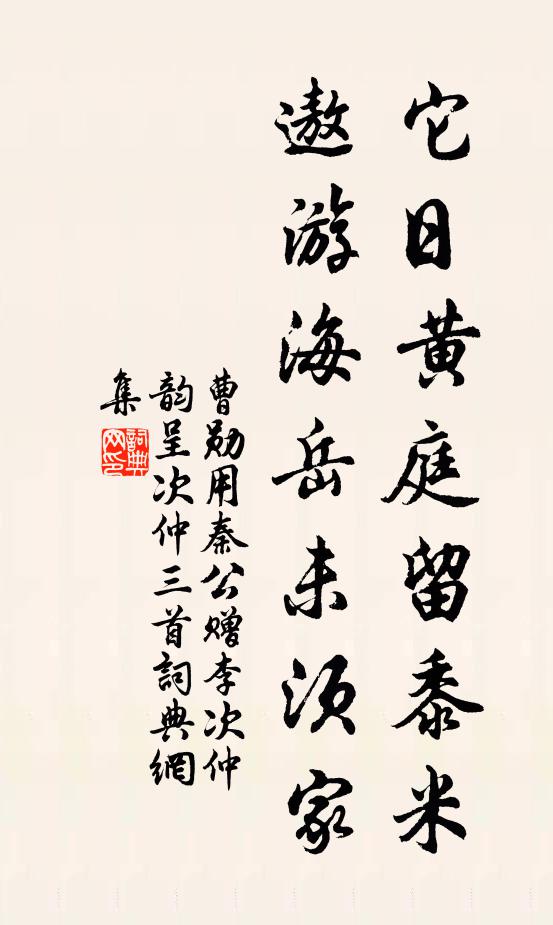 它日黄庭留黍米
遨游海岳未须家
曹勋用秦公赠李次仲
韵呈次仲三首詞典網
集
詞典網印